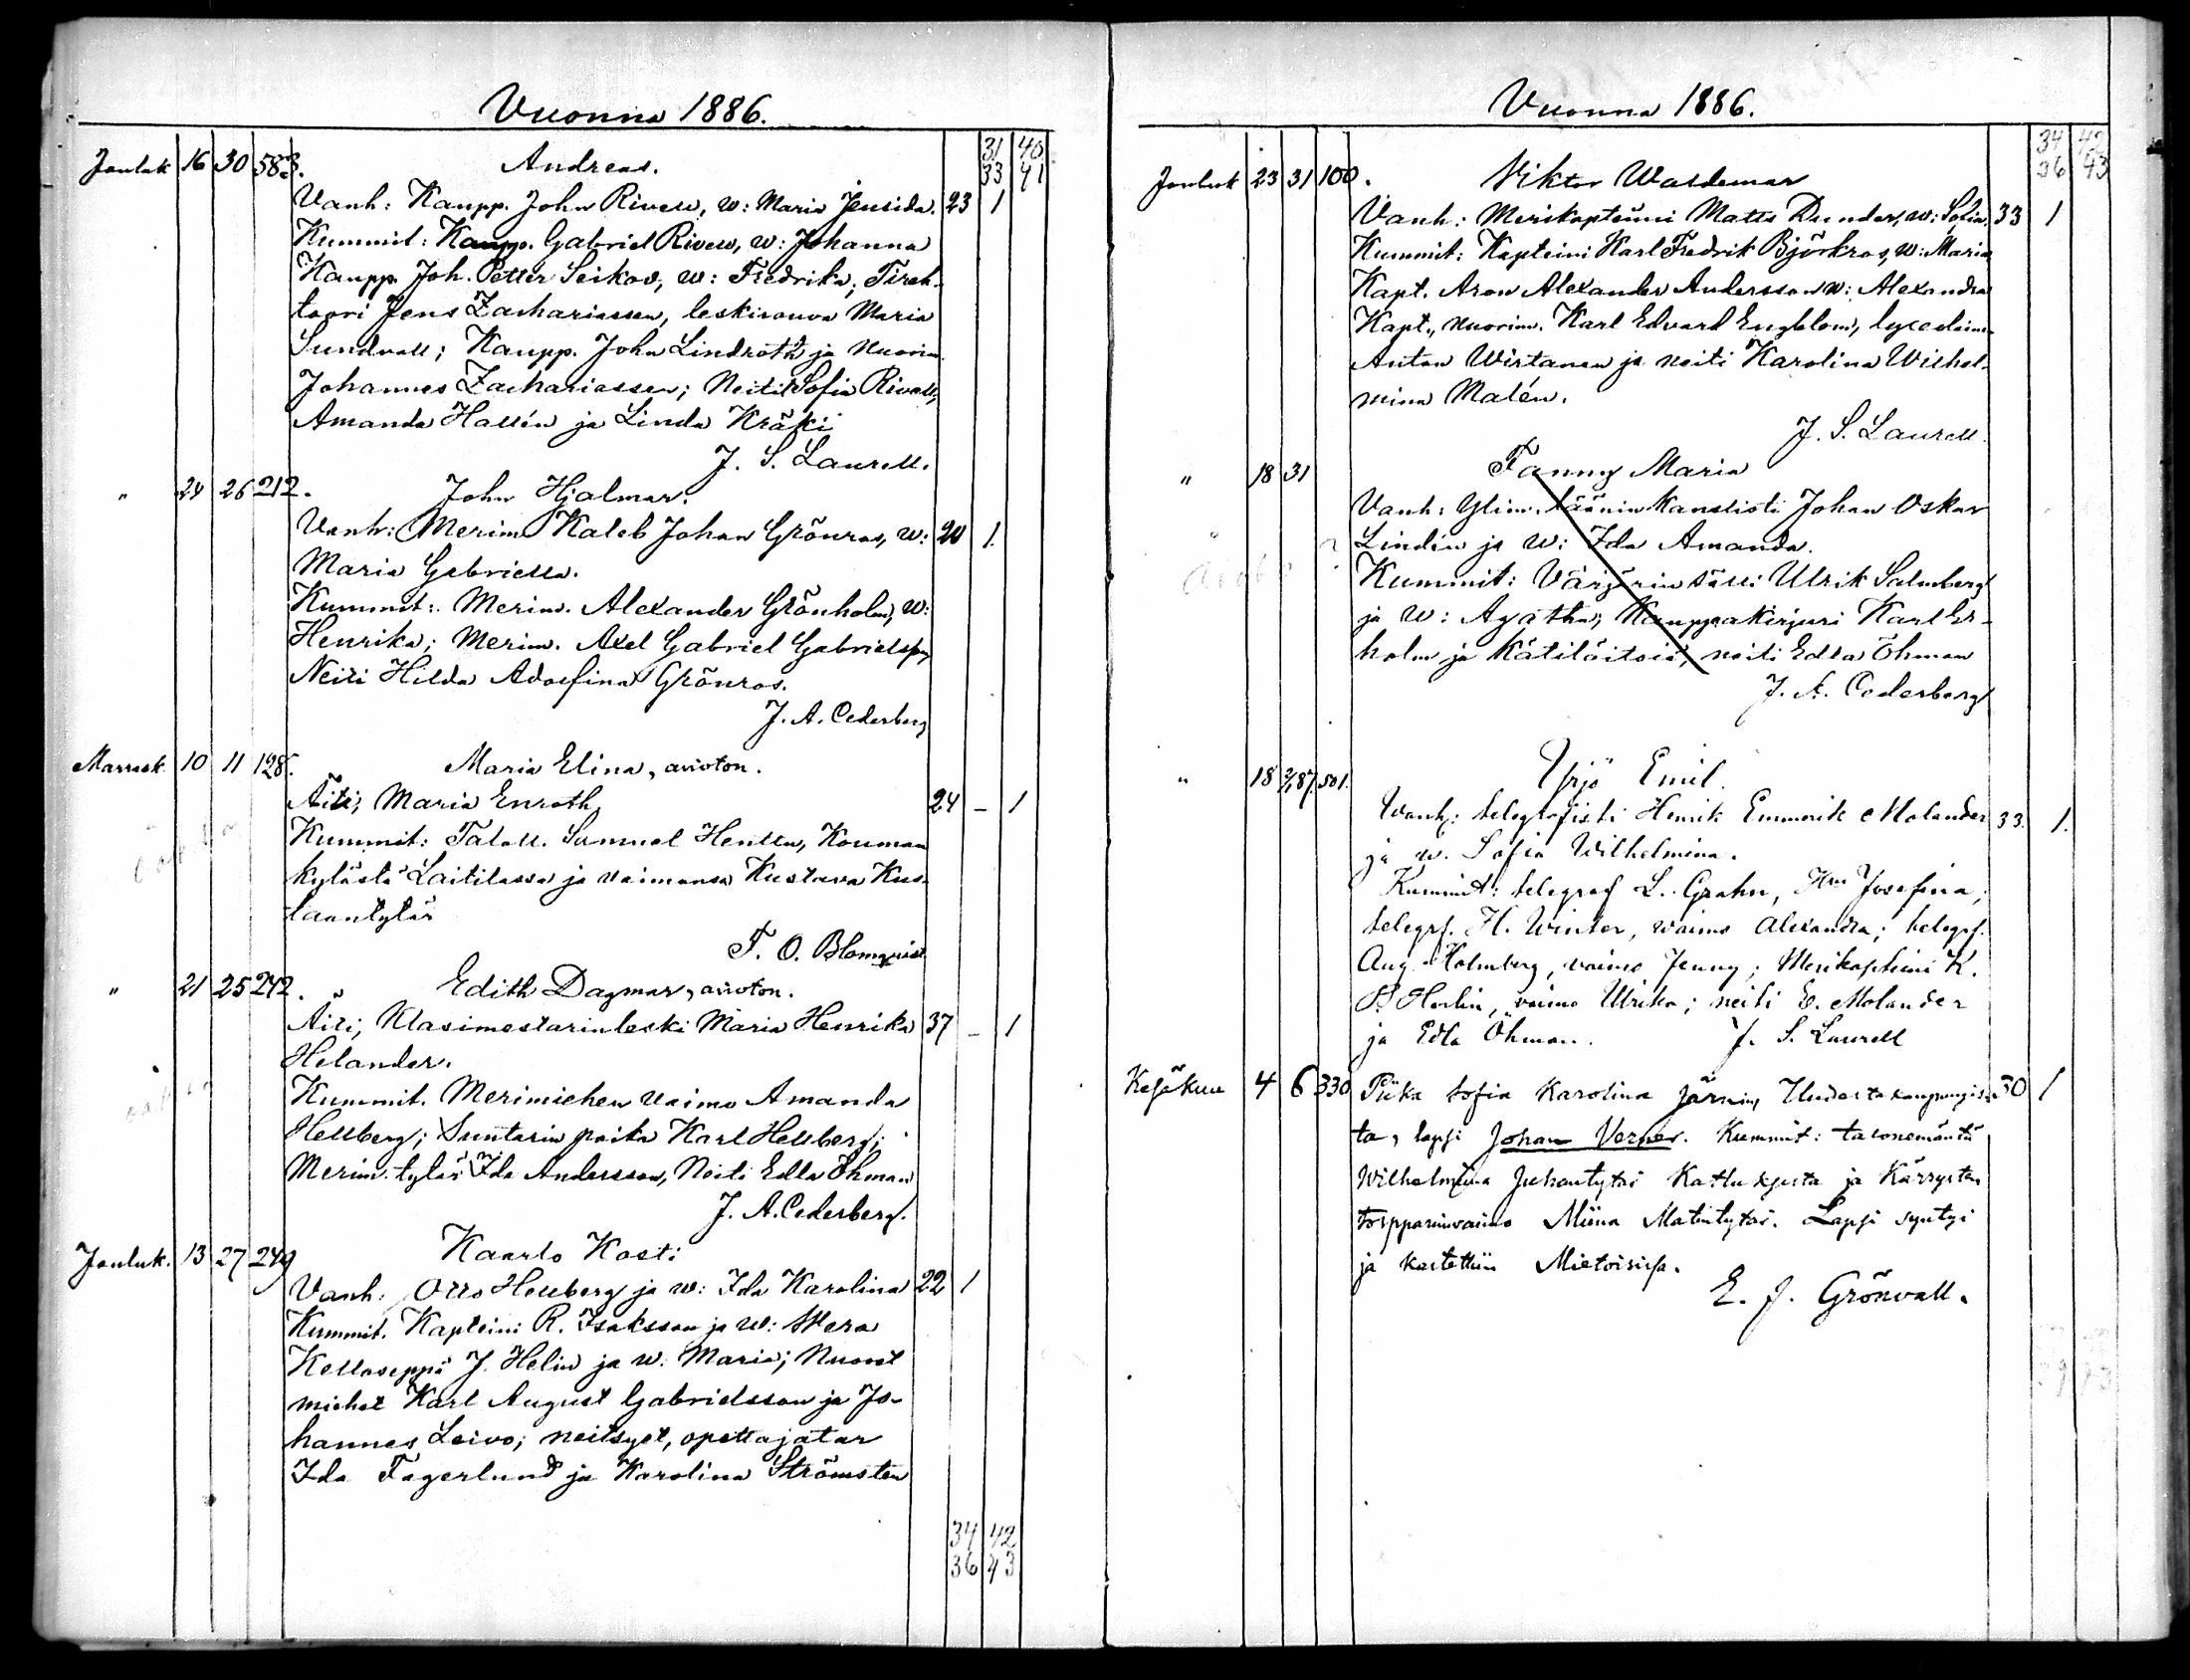 Vuonna 1886.
31 40
33 41
Jouluk 16 30 583. Andreas.
Vanh: Kaupp. John Rivell, w: Maria Jensida. 23 1
Kummit: Kaupp. Gabriel Rivell, w: Johanna
Kaupp. Joh. Petter Seikov, w: Fredrika; Tireh-
töori Jens Zachariassen, leskirouva Maria
Sundvall; Kaupp. John Lindroth ja Nuorim.
Johannes Zachariassen; Neitit Sofia Rivell,
Amanda Hallén ja Linda Kräki
J. S. Laurell.
" 24 26 212. John Hjalmar.
Vanh: Merim. Kaleb Johan Grönros, w: 20 1.
Maria Gabriella.
Kummit: Merim. Alexander Grönholm, w:
Henrika; Merim. Axel Gabriel Gabrielsson,
Neiti Hilda Adolfina Grönros.
J. A. Cederberg
Marrask. 10 11 128. Maria Elina, avioton.
Äiti; Maria Enroth, 24 – 1
Kummit: Taloll. Samuel Henttu, Kouman
kylästä Laitilassa ja vaimonsa Kustava Kus-
taantytär
F. O. Blomqvist
" 21 25 242. Edith Dagmar, avioton.
Äiti; Klasimestarinleski Maria Henrika 37 – 1
Helander.
Kummit. Merimiehen vaimo Amanda
Hellberg; Suntarin poika Karl Hellberg;
Merim. tytär Ida Andersson, Neiti Edla Öhman
J. A. Cederberg.
Jouluk. 13 27 249 Kaarlo Kosti
Vanh: Otto Hellberg ja w: Ida Karolina 22 1
Kummit. Kapteini R. Isaksson ja w: Wera
Kelloseppä J. Helin ja w. Maria; Nuoret
miehet Karl August Gabrielsson ja Jo-
hannes Leivo; neitsyet, opettajatar
Ida Fagerlund ja Karolina Strömsten
34 42
36 43
Vuonna 1886.
34 42
36 43
Jouluk 23 31 100. Viktor Waldemar
Vanh: Merikapteini Matts Dunder, w: Sofia. 33 1
Kummit: Kapteini Karl Fredrik Björkros, w: Maria
Kapt. Aron Alexander Andersson w: Alexandra
Kapt., nuorim. Karl Edvard Engblom, lyceolain.
Anton Wirtanen ja neiti Karolina Wilhel-
mina Malén.
J. S. Laurell.
" 18 31 Fanny Maria
Vanh: Ylim. läänin kanslisti Johan Oskar
Lindén ja w: Ida Amanda.
Kummit: Värjärin sälli Ulrik Salmberg
ja w: Agatha; Kauppakirjuri Karl Er-
holm ja Kätilöitsiä, neiti Edla Öhman
J. A. Cederberg
" 18 2/1 87. 501. Yrjö Emil.
Vanh: telegrafisti Henrik Emmerik Molander 33. 1.
ja w. Sofia Wilhelmina.
Kummit: telegraf L. Grahn, Hra Josefina;
telegrf. H. Winter, vaimo Alexandra; telegrf.
Aug. Holmberg, vaimo Jenny; Merikapteini K.
B. Herlin, vaimo Ulrika; neiti E. Molander
ja Edla Öhman. J. S. Laurell
Kesäkuu 4 6 330 Piika Sofia Karolina Järvin, Uudestakaupungis- 30 1
ta, lapsi Johan Verner. Kummit: talonemäntä
Wilhelmiina Juhantytär Katlukysta ja Kärsysten
torpparinvaimo Miina Matintytär. Lapsi syntyi
ja kastettiin Mietoisissa.
E. J. Grönvall.